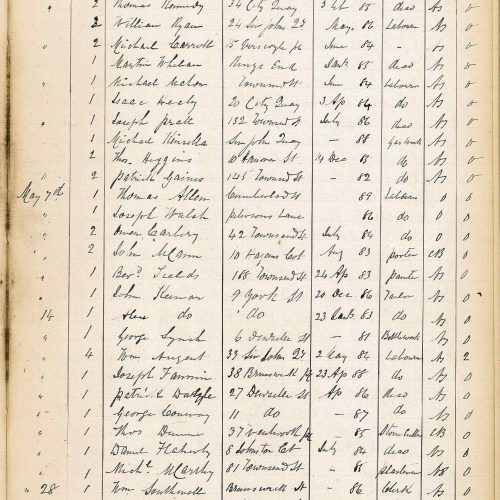 " 2 Thomas Kennedy 34 City Quay 85 dead Ns 0
2 William Ryan 24 Sir John Qy May 86 Labourer Ns 0
" 2 Michael Carroll 5 June 84 - Ns 0
1 Martin Whelan Rings End 85 dead Ns 0
" 1 Michael Townsend St June 84 Labourer Ns 0
1 Isaac Healy 20 City Quay 3 Ap 84 do Ns 0
" 1 Joseph Pratt 132 Townsend St July 86 dead Ns 0
1 Michael Kinsella Sir John Quay - 88 Ns 0
2 Thos. Higgins 10 Hanover St 14 Dec 83 do Ns 0
" 2 Patrick Gaines 145 Townsend St - 82 do Ns 0
May 7th 1 Thomas Allen Cumberland St 89 Labourer 0 0
" 1 Joseph Walsh Petersons Lane 86 do 0 0
" 2 Owen Carbery 42 Townsend St July 84 do 0 0
" 2 John McCann 10 Cot Aug 83 porter CB 0
" 1 Bard. Fields 168 Townsend St 24 Ap 83 painter Ns 0
" 1 John Keenan 9 York St 20 Dec 86 Tailor Ns 0
14 1 do do 23 83 do Ns 0
" 1 George Lynch 6 Denzille St - 81 Ns 0
" 4 Wm Nugent 33 Sir John Qy 2 May 84 Labourer Ns 2
" 1 Joseph Fannin 38 Brunswick 23 Ap 88 do Ns 0
" 1 Patrick Dalzyle 27 Denzille St Ap 86 dead Ns 0
" 1 George Conway 11 do - 87 do Ns 0
" 1 Thos Dunne 37 Wentworth pl - 85 Stonecutter CB 0
" 1 Daniel Flaherty 8 Johnston Cot July 84 dead Ns 0
" 1 Michl. McCarthy 81 Townsend St - 81 Plasterer Ns 0
" 28 1 Wm Southwell Brunswick St - 86 Clerk Ns 0